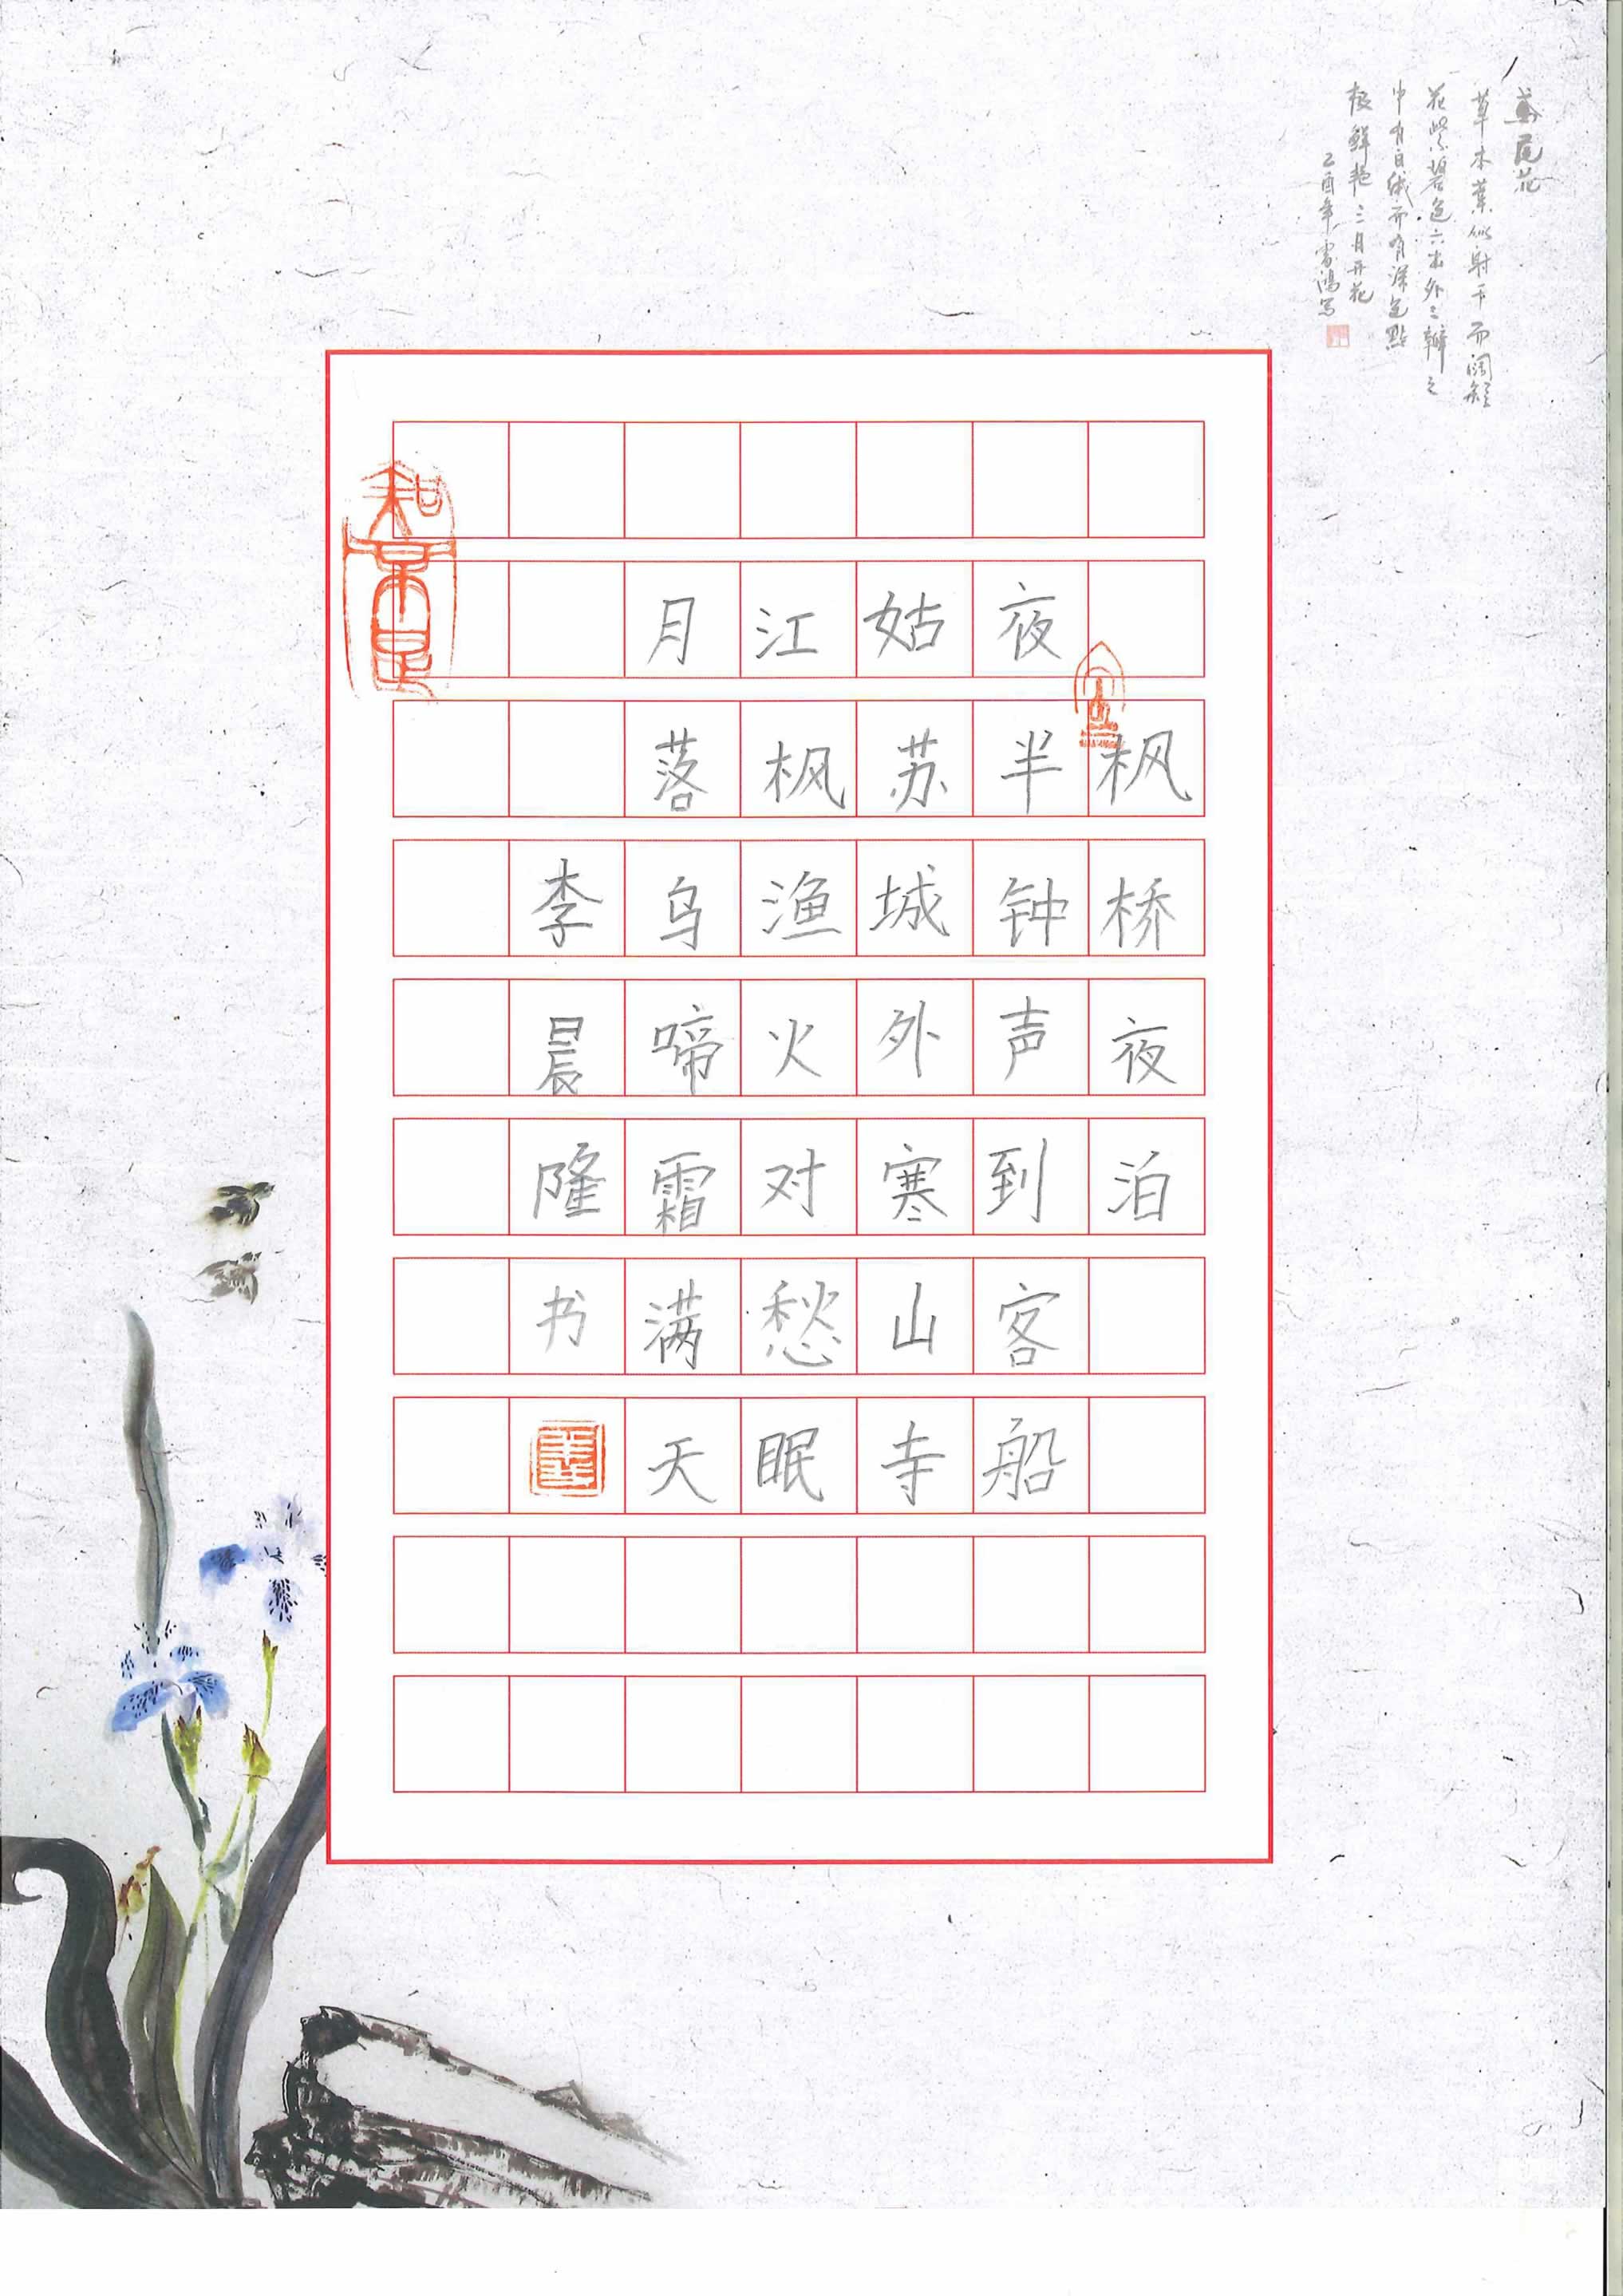 鳶尾花
草木葉似射干而阔短
花紫碧色六出外三瓣之
中有白绒而有深色點
极鲜艳三月开花
乙酉年
枫桥夜泊
夜半钟声到客船
姑苏城外寒山寺
江枫渔火对愁眠
月落乌啼霜满天
李晨隆书
知不足